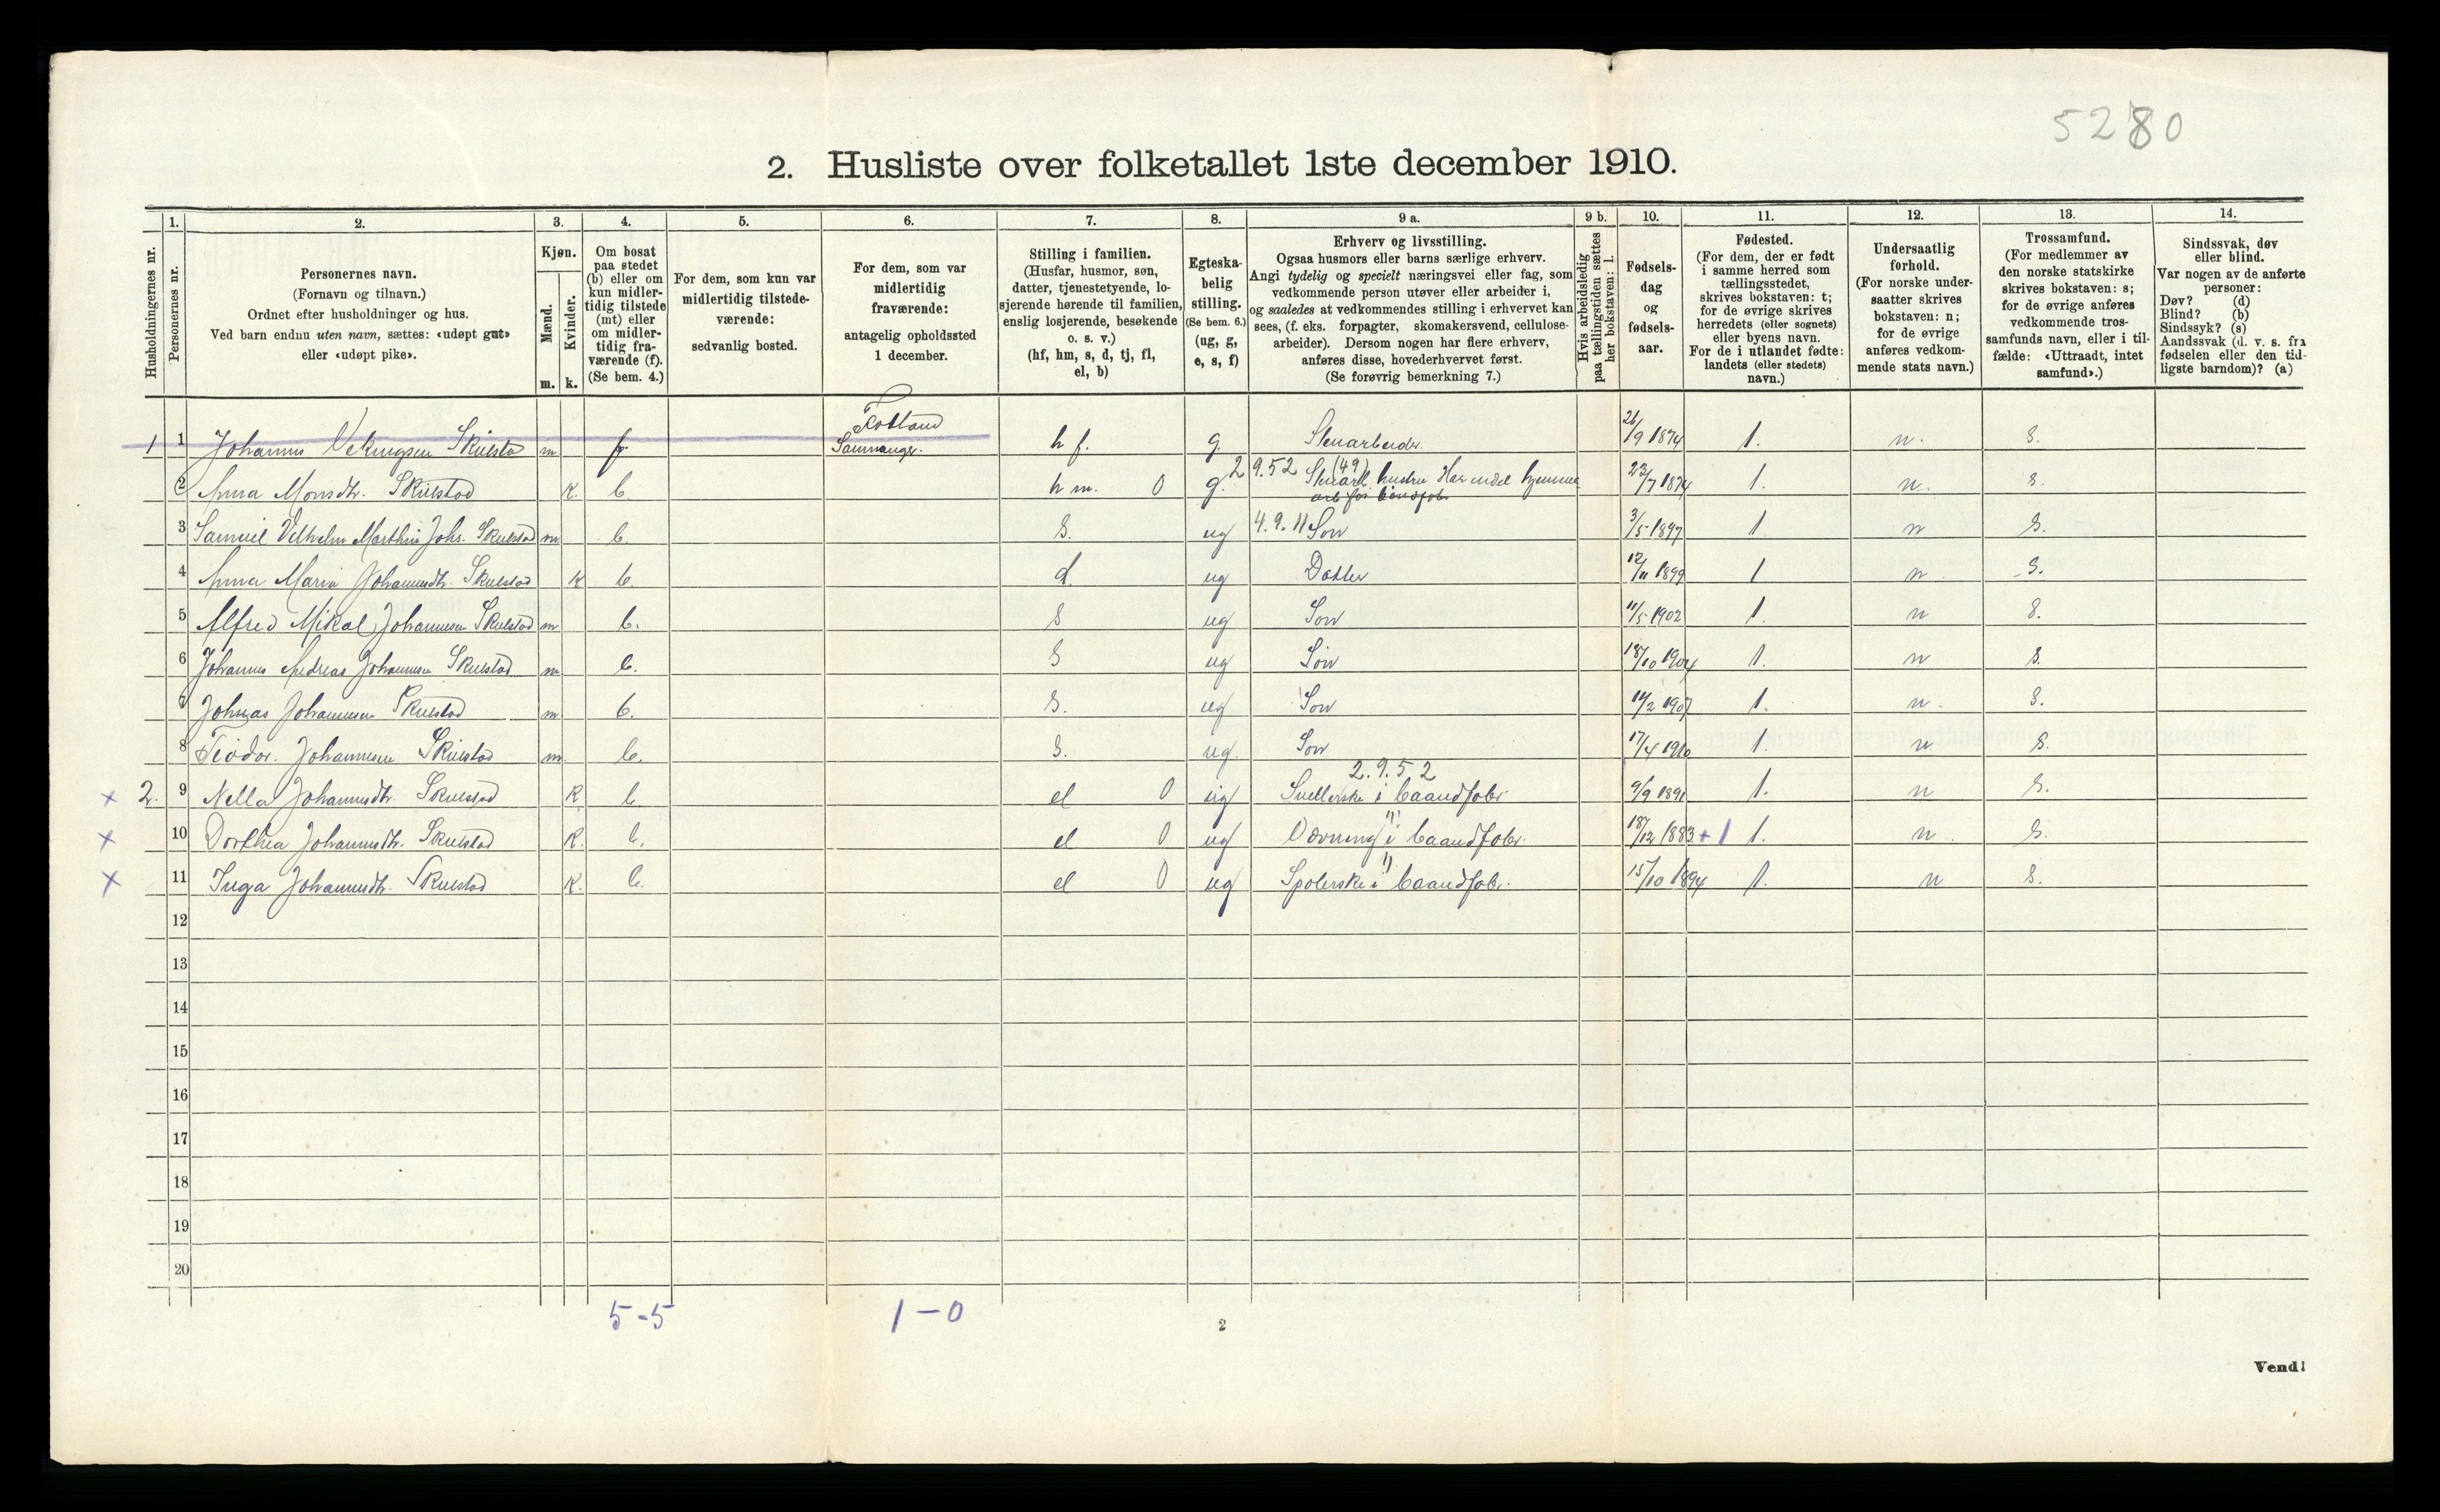 5280
2. Husliste over folketallet 1ste december 1910.
1. 2. 3. 4. 5. 6. 7. 8. 9 a. 9 b. 10. 11. 12. 13. 14.
Husholdningernes nr.
Personernes nr.
Personernes navn.
(Fornavn og tilnavn.)
Ordnet efter husholdninger og hus.
Ved barn endnu uten navn, sættes: «udøpt gut»
eller «udøpt pike».
Kjøn.
Mænd.
Kvinder.
m. k.
Om bosat
paa stedet
(b) eller om
kun midler-
tidig tilstede
(mt) eller
om midler-
tidig fra-
værende (f).
(Se bem. 4.)
For dem, som kun var
midlertidig tilstede-
værende:
sedvanlig bosted.
For dem, som var
midlertidig
fraværende:
antagelig opholdssted
1 december.
Stilling i familien.
(Husfar, husmor, søn,
datter, tjenestetyende, lo-
sjerende hørende til familien,
enslig losjerende, besøkende
o. s. v.)
(hf, hm, s, d, tj, fl,
el, b)
Egteska-
belig
stilling.
(Se bem. 6.)
(ug, g,
e, s, f)
Erhverv og livsstilling.
Ogsaa husmors eller barns særlige erhverv.
Angi tydelig og specielt næringsvei eller fag, som
vedkommende person utøver eller arbeider i,
og saaledes at vedkommendes stilling i erhvervet kan
sees, (f. eks. forpagter, skomakersvend, cellulose-
arbeider). Dersom nogen har flere erhverv,
anføres disse, hovederhvervet først.
(Se forøvrig bemerkning 7.)
Hvis arbeidsledig
paa tællingstiden sættes
her bokstaven: l.
Fødsels-
dag
og
fødsels-
aar.
Fødested.
(For dem, der er født
i samme herred som
tællingsstedet,
skrives bokstaven: t;
for de øvrige skrives
herredets (eller sognets)
eller byens navn.
For de i utlandet fødte:
landets (eller stedets)
navn.)
Undersaatlig
forhold.
(For norske under-
saatter skrives
bokstaven: n;
for de øvrige
anføres vedkom-
mende stats navn.)
Trossamfund.
(For medlemmer av
den norske statskirke
skrives bokstaven: s;
for de øvrige anføres
vedkommende tros-
samfunds navn, eller i til-
fælde: «Uttraadt, intet
samfund».)
Sindssvak, døv
eller blind.
Var nogen av de anførte
personer:
Døv? (d)
Blind? (b)
Sindssyk? (s)
Aandssvak (d. v. s. fra
fødselen eller den tid-
ligste barndom)? (a)
1 1 Johannes Skulstad m f. Samnanger. h f. g. Stenarbeider. 26/9 1874 t. n. s.
2 Anna Monsdtr. Skulstad k. b. h m. 0 g. 2 9.52 (49) Stenarb. hustru Har endel hjemme 23/7 1874 t. n. s.
arb for baandfabr
3 Samuel Vilhelm Marthin Johs. Skulstad m b. s. ug 4.9.11 Søn 3/5 1897 t n s.
4 Anna Maria Johannesdtr. Skulstad k b. d. ug Datter 12/11 1899 t n s.
5 Alfred Mikal Johannesen Skulstad m b. s ug Søn 11/5 1902 t. n s.
6 Johannes Andreas Johannesen Skulstad m b. s ug Søn 18/10 1904 t. n s.
7 Johnas Johannesen Skulstad m b. s. ug Søn 14/2 1907 t. n. s.
8 Teodor. Johannesen Skulstad m. b. s. ug. Søn 17/4 1910 t. n s.
2.9.52
x 2. 9 Nella Johannesdtr. Skulstad k b el 0 ug i baandfabr 9/9 1891 t. n s.
x 10 Dorthea Johannesdtr. Skulstad k. b. el 0 ug i baandfabr. 18/12 1883 + 1 t. n s.
x 11 Inga Johannesdtr. Skulstad k. b. el 0 ug Spolerske i baandfabr. 15/10 1894 t. n s.
12
13
14
15
16
17
18
19
20
5-5 1-0
2
Vend!